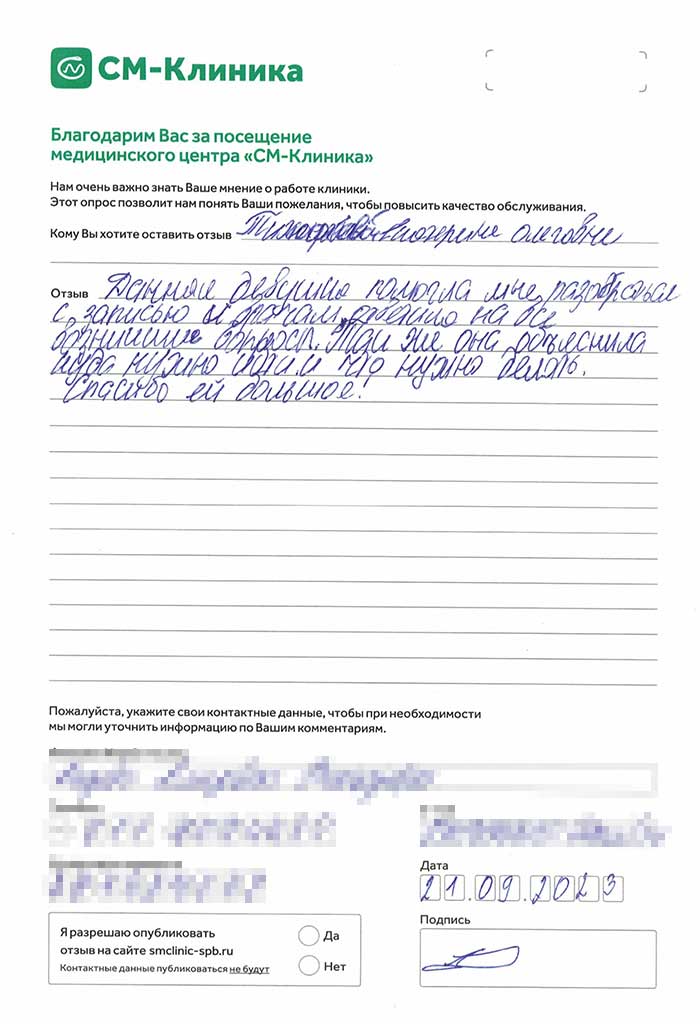 СМ-Клиника
Благодарим Вас за посещение
медицинского центра «СМ-Клиника»
Нам очень важно знать Ваше мнение о работе клиники.
Этот опрос позволит нам понять Ваши пожелания, чтобы повысить качество обслуживания.
Кому Вы хотите оставить отзыв Екатерине Олеговне
Отзыв Данная девушка помогла мне разобраться
с записью к врачам, ответила на все
возникшие вопросы. Так же она объяснила
куда нужно идти и что нужно делать.
Спасибо ей большое!
Пожалуйста, укажите свои контактные данные, чтобы при необходимости
мы могли уточнить информацию по Вашим комментариям.
Дата
21.09.2023
Подпись
Я разрешаю опубликовать
отзыв на сайте smclinic-spb.ru
Контактные данные публиковаться не будут
Да
Нет